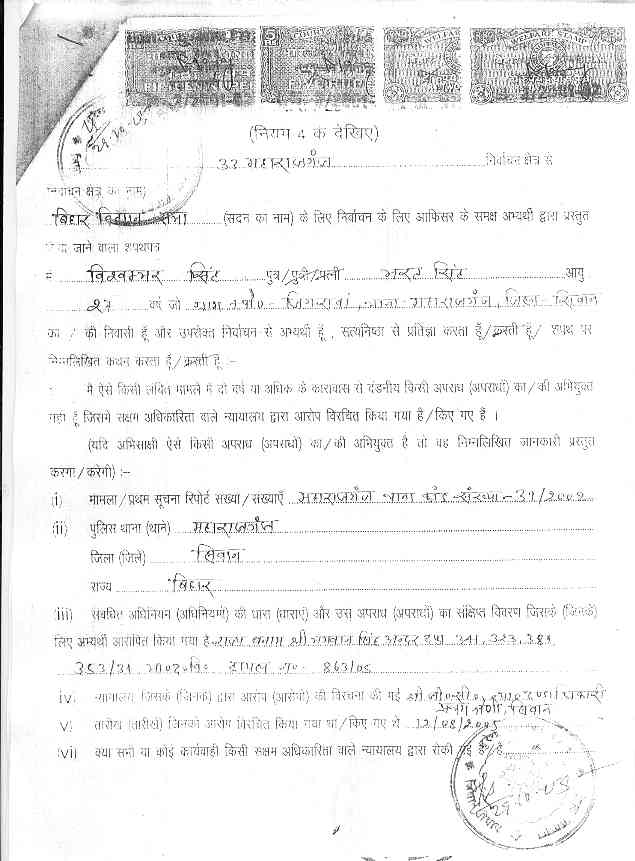 (नियम 4 क देखिए)
33 महाराजगंज निर्वाचन क्षेत्र से
निर्वाचन क्षेत्र का नाम)
बिहार विधान सभा (सदन का नाम) के लिए निर्वाचन के लिए आफिसर के समक्ष अभ्यर्थी द्वारा प्रस्तुत
किया जाने वाला शपथपत्र
मैं विश्वम्भर सिंह पुत्र/पुत्री/पत्नी भरत सिंह आयु
27 वर्ष जो थाना-महाराजगंज, जिला-सिवान
का / की निवासी हूँ और उपरोक्त निर्वाचन से अभ्यर्थी हूँ , सत्यनिष्ठा से प्रतिज्ञा करता हूँ/करती हूँ/ शपथ पर
निम्नलिखित कथन करता हूँ/करती हूँ :-
मैं ऐसे किसी लंबित मामले में दो वर्ष या अधिक के कारावास से दंडनीय किसी अपराध (अपराधों) का/की अभियुक्त
नहीं हूँ जिसमें सक्षम अधिकारिता वाले न्यायालय द्वारा आरोप विरचित किया गया है/किए गए है ।
(यदि अभिसाक्षी ऐसे किसी अपराध (अपराधों) का/की अभियुक्त है तो वह निम्नलिखित जानकारी प्रस्तुत
करेगा/करेगी) :-
(i) मामला/प्रथम सूचना रिपोर्ट संख्या/संख्याएँ महाराजगंज थाना कांड संख्या-
(ii) पुलिस थाना (थाने) महाराजगंज
जिला (जिले) सिवान
राज्य बिहार
(iii) संबंधित अधिनियम (अधिनियमों) की धारा (धाराएं) और उस अपराध (अपराधों) का संक्षिप्त विवरण जिसके (जिनके)
लिए अभ्यर्थी आरोपित किया गया है राज्य बनाम श्री भगवान सिंह अन्दर दफा 341, 323,
353/31 863/05
iv) न्यायालय जिसके (जिनके) द्वारा आरोप (आरोपों) की विरचना की गई
v) तारीख (तारीखें) जिनको आरोप विरचित किया गया था/किए गए थे 12/08/2005
(vi) क्या सभी या कोई कार्यवाही किसी सक्षम अधिकारिता वाले न्यायालय द्वारा रोकी गई है/हैं